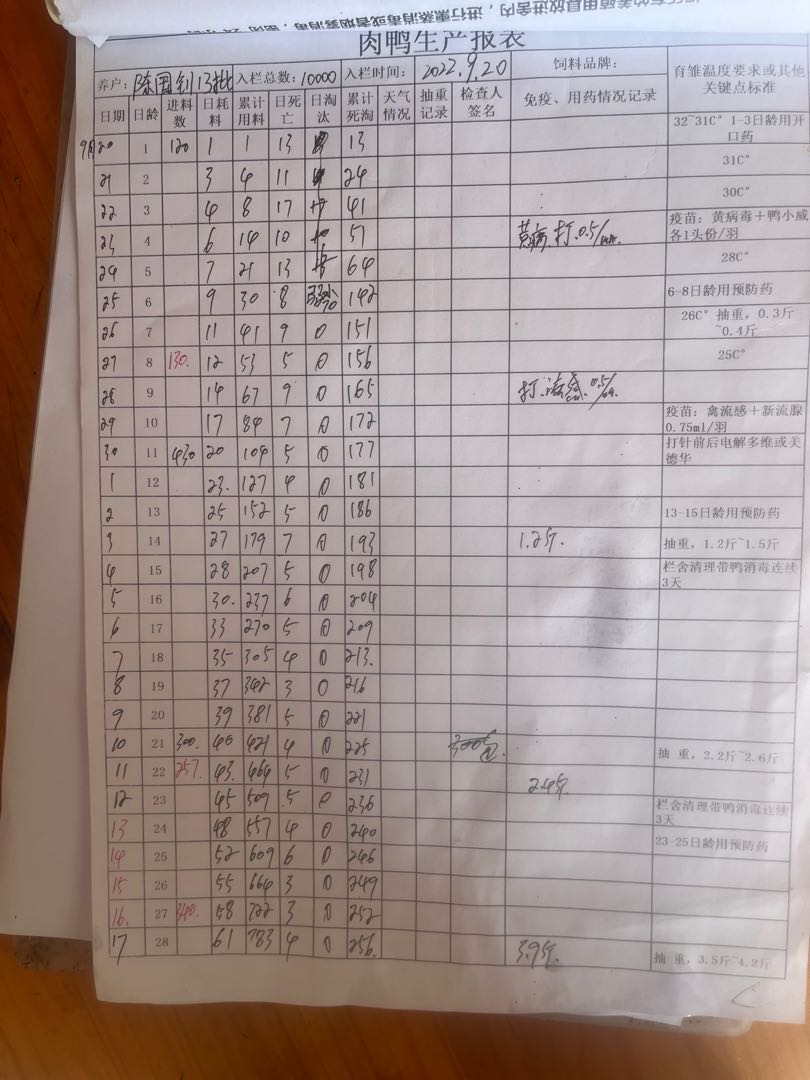 肉鸭生产报表
养户: 陈国钊13批 入栏总数: 10000 入栏时间: 2022.9.20 饲料品牌: 育雏温度要求或其他关键点标准
日期 日龄 进料数 日耗料 累计用料 日死亡 日淘汰 累计死淘 天气情况 抽重记录 检查人签名 免疫、用药情况记录
9月20 1 120 1 1 13 13 32~31C° 1-3日龄用开口药
21 2 3 4 11 24 31C°
22 3 4 8 17 41 30C°
23 4 6 14 10 51 黄病.打.0.5/ 疫苗: 黄病毒+鸭小威各1头份/羽
24 5 7 21 13 64 28C°
25 6 9 30 8 70 142 6-8日龄用预防药
26 7 11 41 9 0 151 26C° 抽重, 0.3斤~0.4斤
27 8 130. 12 53 5 0 156 25C°
28 9 14 67 9 0 165 打.流感 0.5/
29 10 17 84 7 0 172 疫苗: 禽流感+新流腺0.75ml/羽
30 11 430 20 104 5 0 177 打针前后电解多维或美德华
1 12 23. 127 4 0 181
2 13 25 152 5 0 186 13-15日龄用预防药
3 14 27 179 7 0 193 1.2斤. 抽重, 1.2斤~1.5斤
4 15 28 207 5 0 198 栏舍清理带鸭消毒连续3天
5 16 30. 237 6 0 204
6 17 33 270 5 0 209
7 18 35 305 4 0 213.
8 19 37 342 3 0 216
9 20 39 381 5 0 221
10 21 300. 40 421 4 0 225 抽 重, 2.2斤~2.6斤
11 22 257. 43. 464 5 0 231 2.4斤.
12 23 45 509 5 0 236 栏舍清理带鸭消毒连续3天
13 24 48 557 4 0 240 23-25日龄用预防药
14 25 52 609 6 0 246
15 26 55 664 3 0 249
16. 27 340. 58 722 3 0 252
17 28 61 783 4 0 256. 3.9斤. 抽 重, 3.5斤~4.2斤